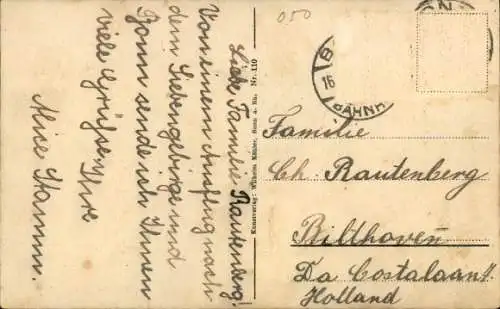 Liebe Familie Rautenberg!
Von einem Ausflug nach
dem Siebengebirge und
Bonn sende ich Ihnen
viele Grüsse, Ihre
Alice Stamm.
Kunstverlag: Wilhelm Köhler, Bonn a. Rh. Nr. 110
050
16
BAHNH
ON
Familie
Ch. Rautenberg
Bilthoven
Da Costalaan
Holland